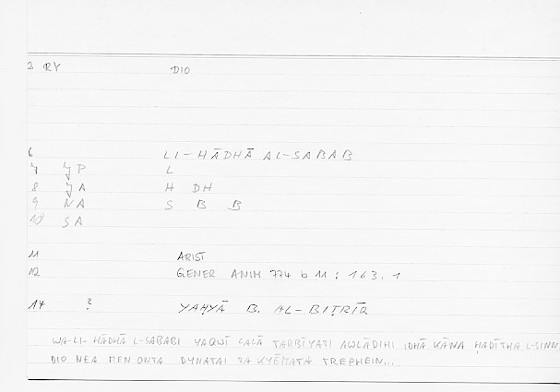 3 RY DIO
6 LI-HĀDHĀ AL-SABAB
7 JP L
8 JA H DH
9 NA S B B
10 SA
11 ARIST
12 GENER ANIM 774 b 11 : 163.1
14 ? YAḤYĀ B. AL-BIṬRĪQ
WA-LI-HĀDHĀ L-SABABI YAQWĪ CALĀ TARBIYATI AWLĀDIHI IDHĀ KĀNA ḤADĪTHA L-SINNI
DIO NEA MEN ONTA DYNATAI TA KYĒMATA TREPHEIN...